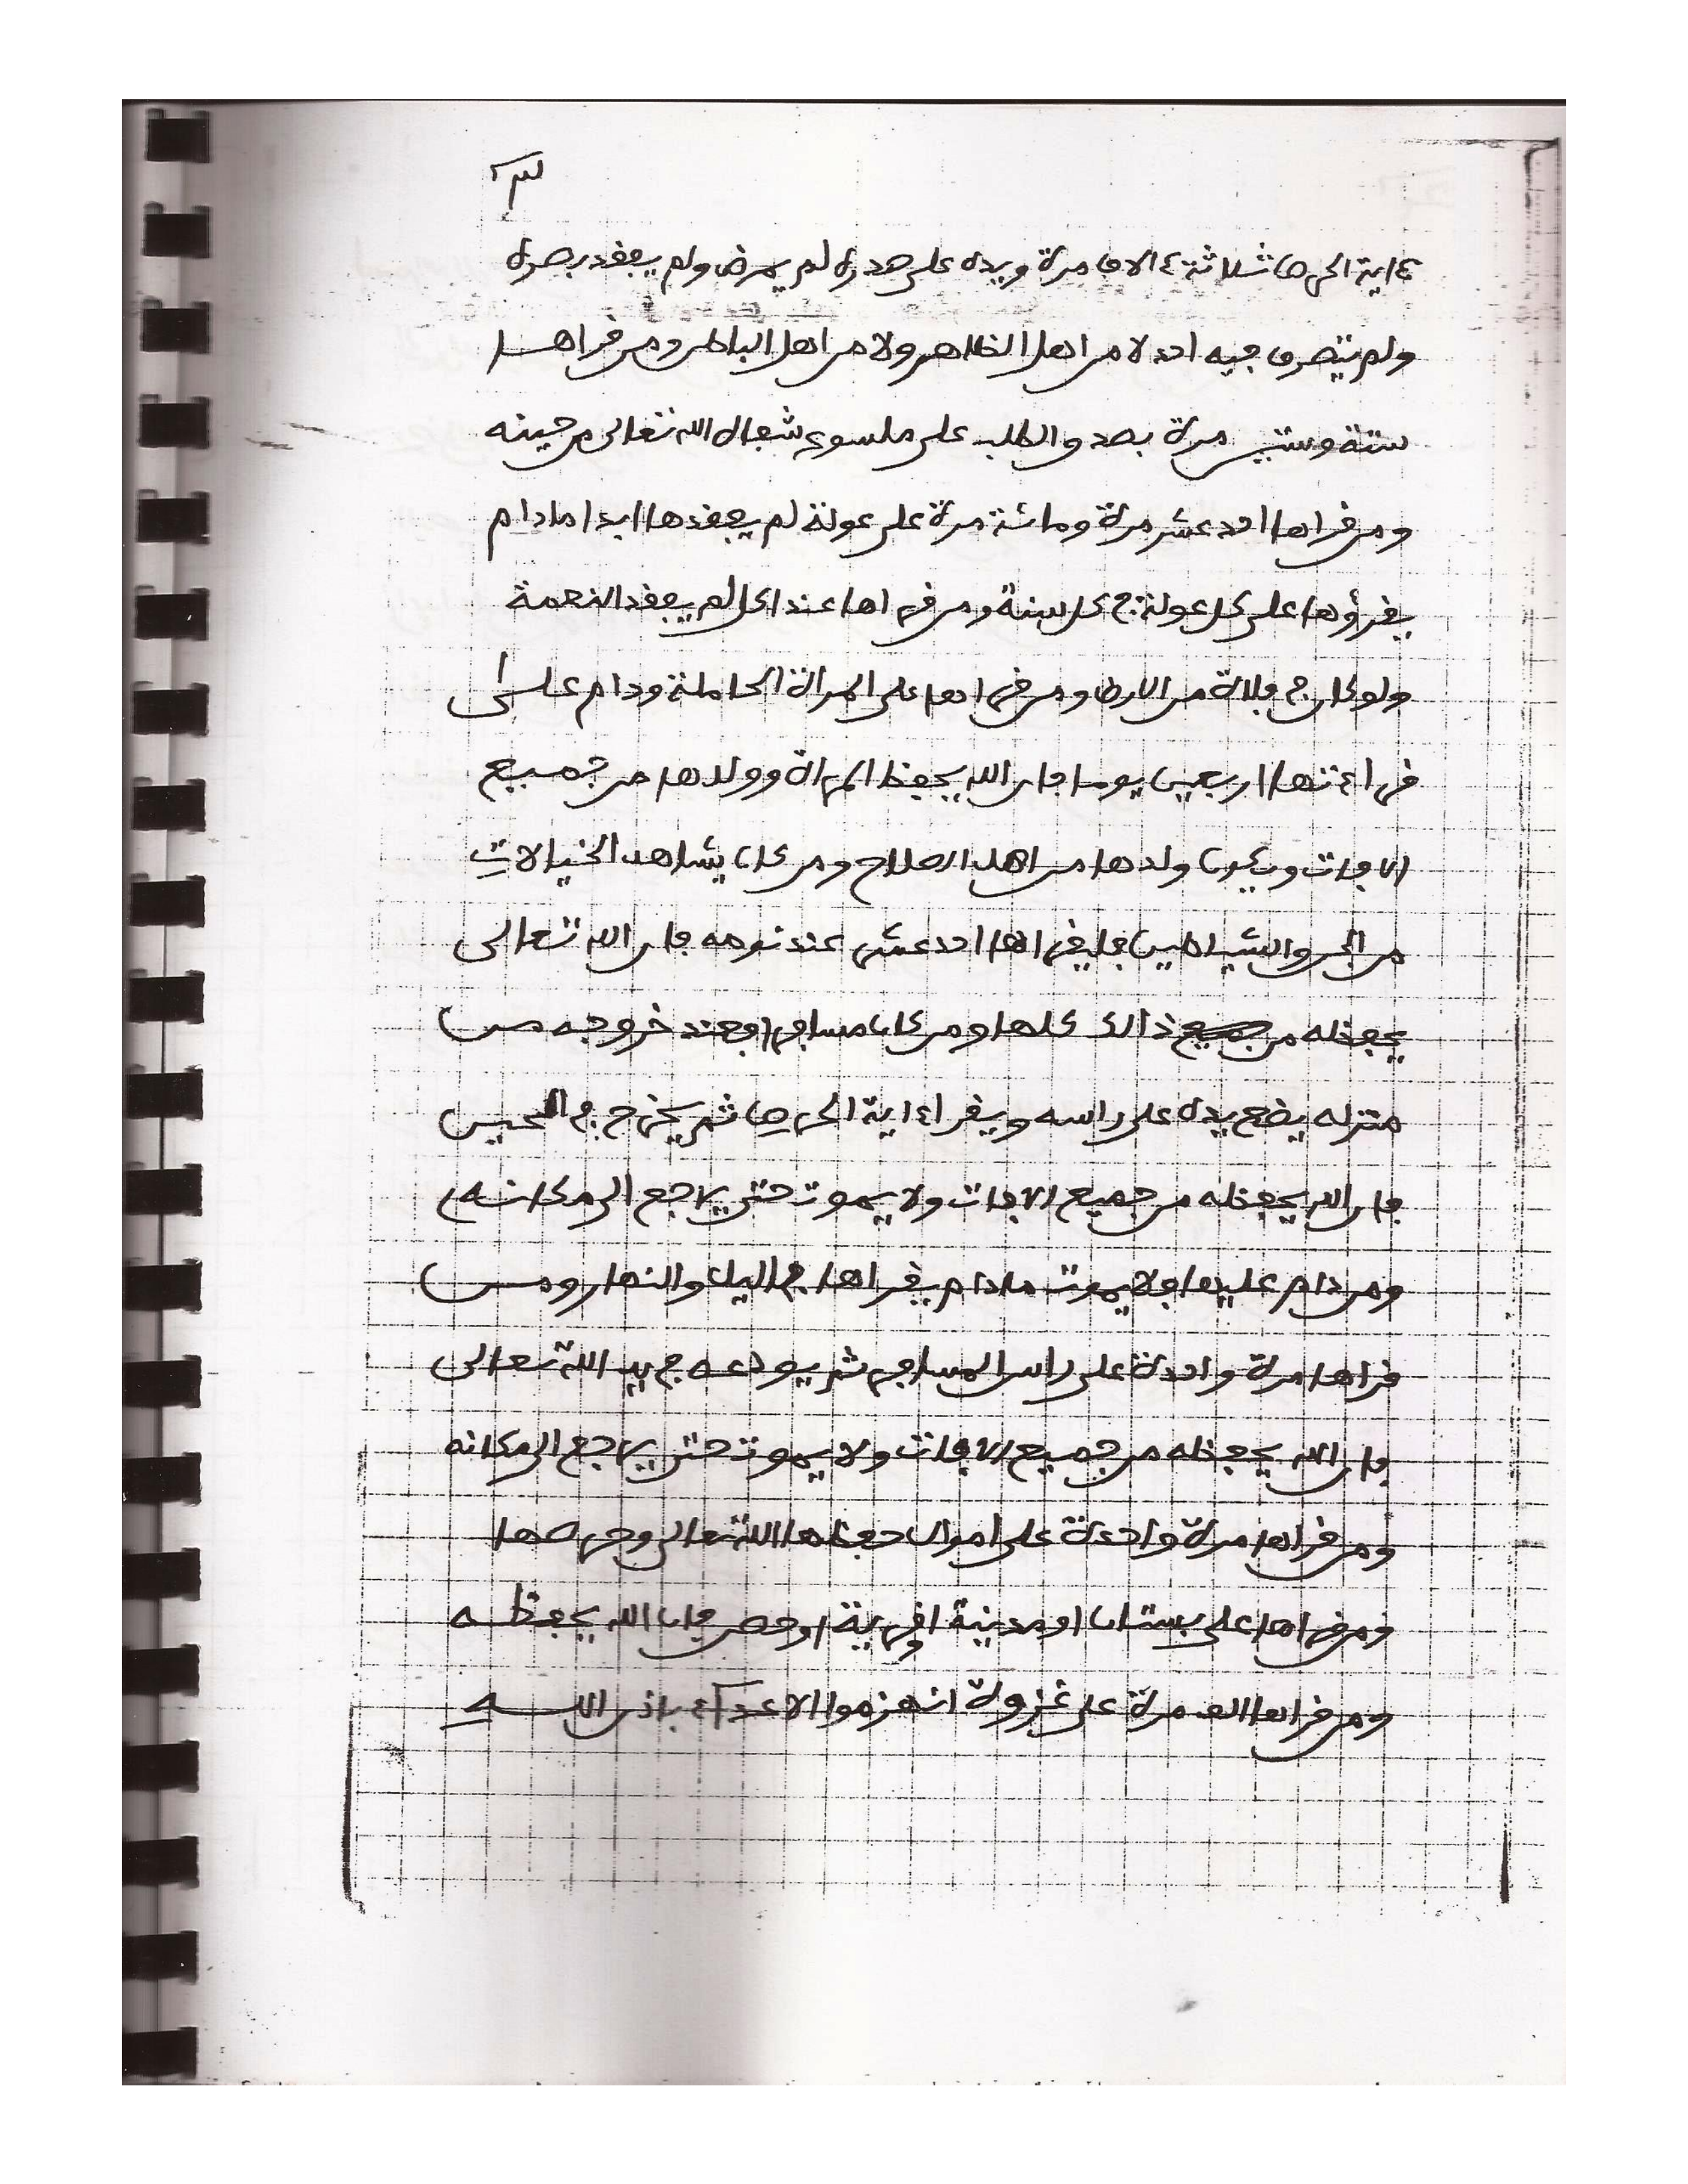 ءاية الحرص ثلاثة ءالاف مرة ويده على صدره لم يمرض ولم يفقد بصره
ولم يتصرف فيه احد لا من اهل الظاهر ولا من اهل الباطن ومن قراها
ستة وستين مرة بصدو الطلب على ملسوع شفاه الله تعالى من حينه
ومن قراها احد عشر مرة ومائة مرة على عولة لم يفقدها ابدا مادام
يقرؤها على كل عولة في كل سنة ومن قراها عند اكل لم يفقد النعمة
ولو كان في فلاة من الارض ومن قراها على المراة الحاملة ودام على
قراءتها اربعين يوما فان الله يحفظ المراة وولدها من جميع
الافات ويكون ولدها من اهل الصلاح ومن كان يشاهد الخيالات
من الجن والشياطين فليقراها احد عشر عند نومه فان الله تعالى
يحفظه من جميع ذالك كلها ومن كان مسافرا فعند خروجه من
منزله يضع يده على راسه ويقرا ءاية الحرص ثم يخرج في الحين
فان الله يحفظه من جميع الافات ولا يموت حتى يراجع الى مكانه
ومن دام عليها فلا يموت مادام يقراها في اليل والنهار ومن
قراها مرة واحدة على راس المسافر ثم يودعه في يد الله تعالى
فان الله يحفظه من جميع الافات ولا يموت حتى يراجع الى مكانه
ومن قراها مرة واحدة على اموال حفظها الله تعالى وحرصها
ومن قراها على بستان او مدينة او قرية او حصن فان الله يحفظه
ومن قراها الف مرة على غزوة انهزموا الاعداء باذن الله